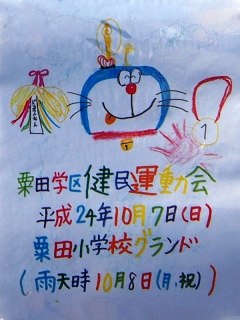 1
粟田学区健民運動会
平成24年10月7日(日)
粟田小学校グランド
(雨天時10月8日(月,祝))